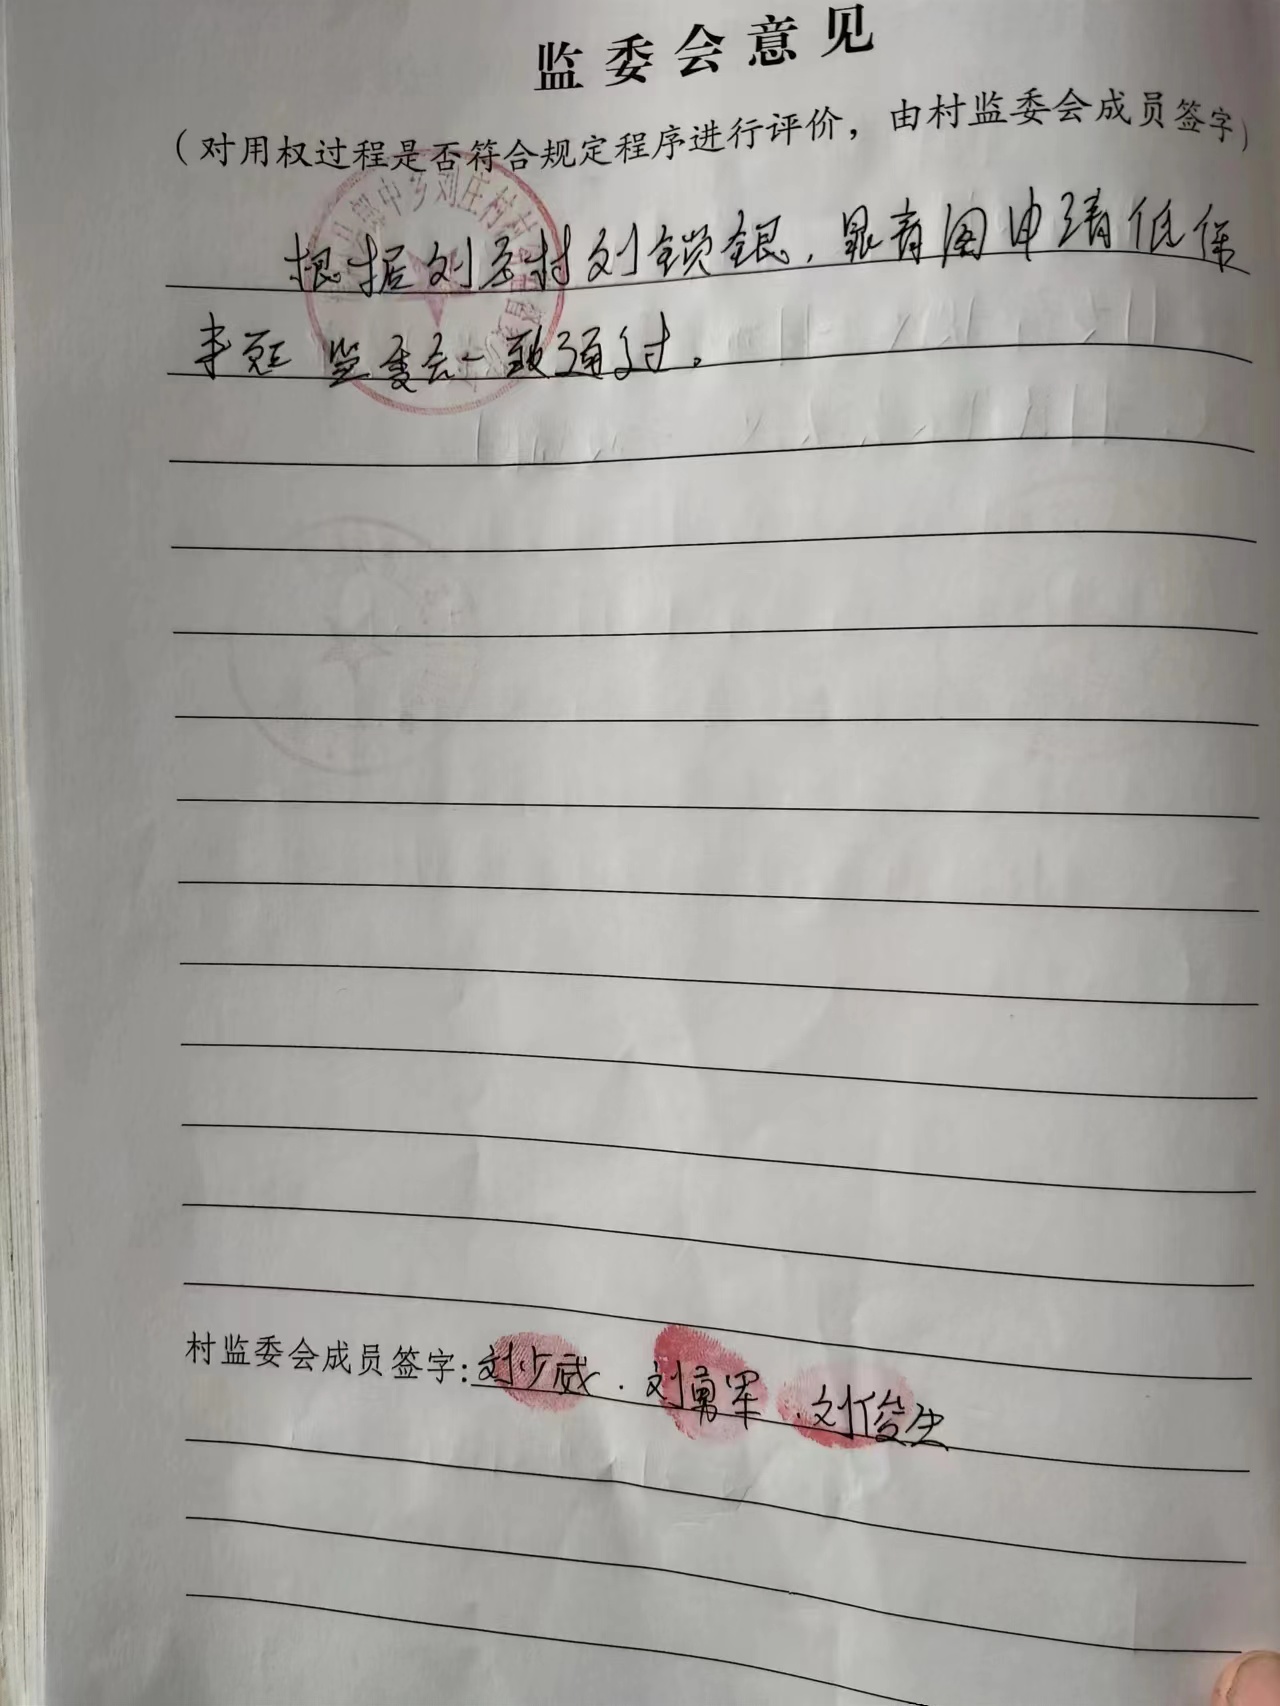 监委会意见
（对用权过程是否符合规定程序进行评价，由村监委会成员签字）
郎中乡刘庄村村
根据刘庄村刘锁银，青阁申请低保
事宜 监委会一致通过。
村监委会成员签字：刘少威．刘勇军．刘俊生